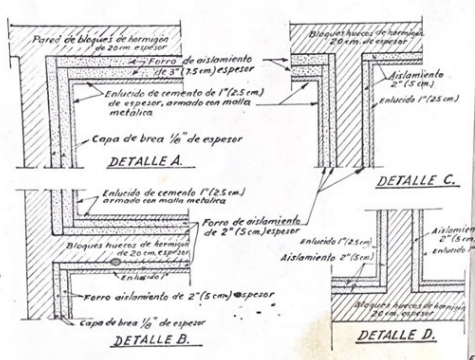 Pared de bloques de hormigón
de 20 cm. espesor
Forro de aislamiento
de 3" (7.5 cm.) espesor
Enlucido de cemento de 1" (2.5 cm.)
de espesor, armado con malla
metálica
Capa de brea 1/8" de espesor
DETALLE A.
Enlucido de cemento 1" (2.5 cm)
armado con malla metálica
Forro de aislamiento
de 2" (5 cm.) espesor
Bloques huecos de hormigón
de 20 cm. espesor
Enlucido 1"
Forro aislamiento de 2" (5 cm) espesor
Capa de brea 1/8" de espesor
DETALLE B.
Bloques huecos de hormigón
20 cm. de espesor
Aislamiento
2" (5 cm.)
Enlucido 1" (2.5 cm)
DETALLE C.
Enlucido 1" (2.5 cm)
Aislamiento 2" (5 cm)
Aislamien
2" (5 cm
Enlucido 1"
Bloques huecos de hormigón
20 cm. espesor
DETALLE D.